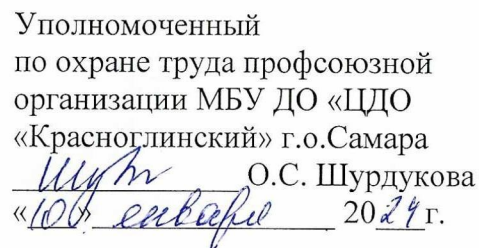 Уполномоченный
по охране труда профсоюзной
организации МБУ ДО «ЦДО
«Красноглинский» г.о.Самара
О.С. Шурдукова
«10» января 2024 г.